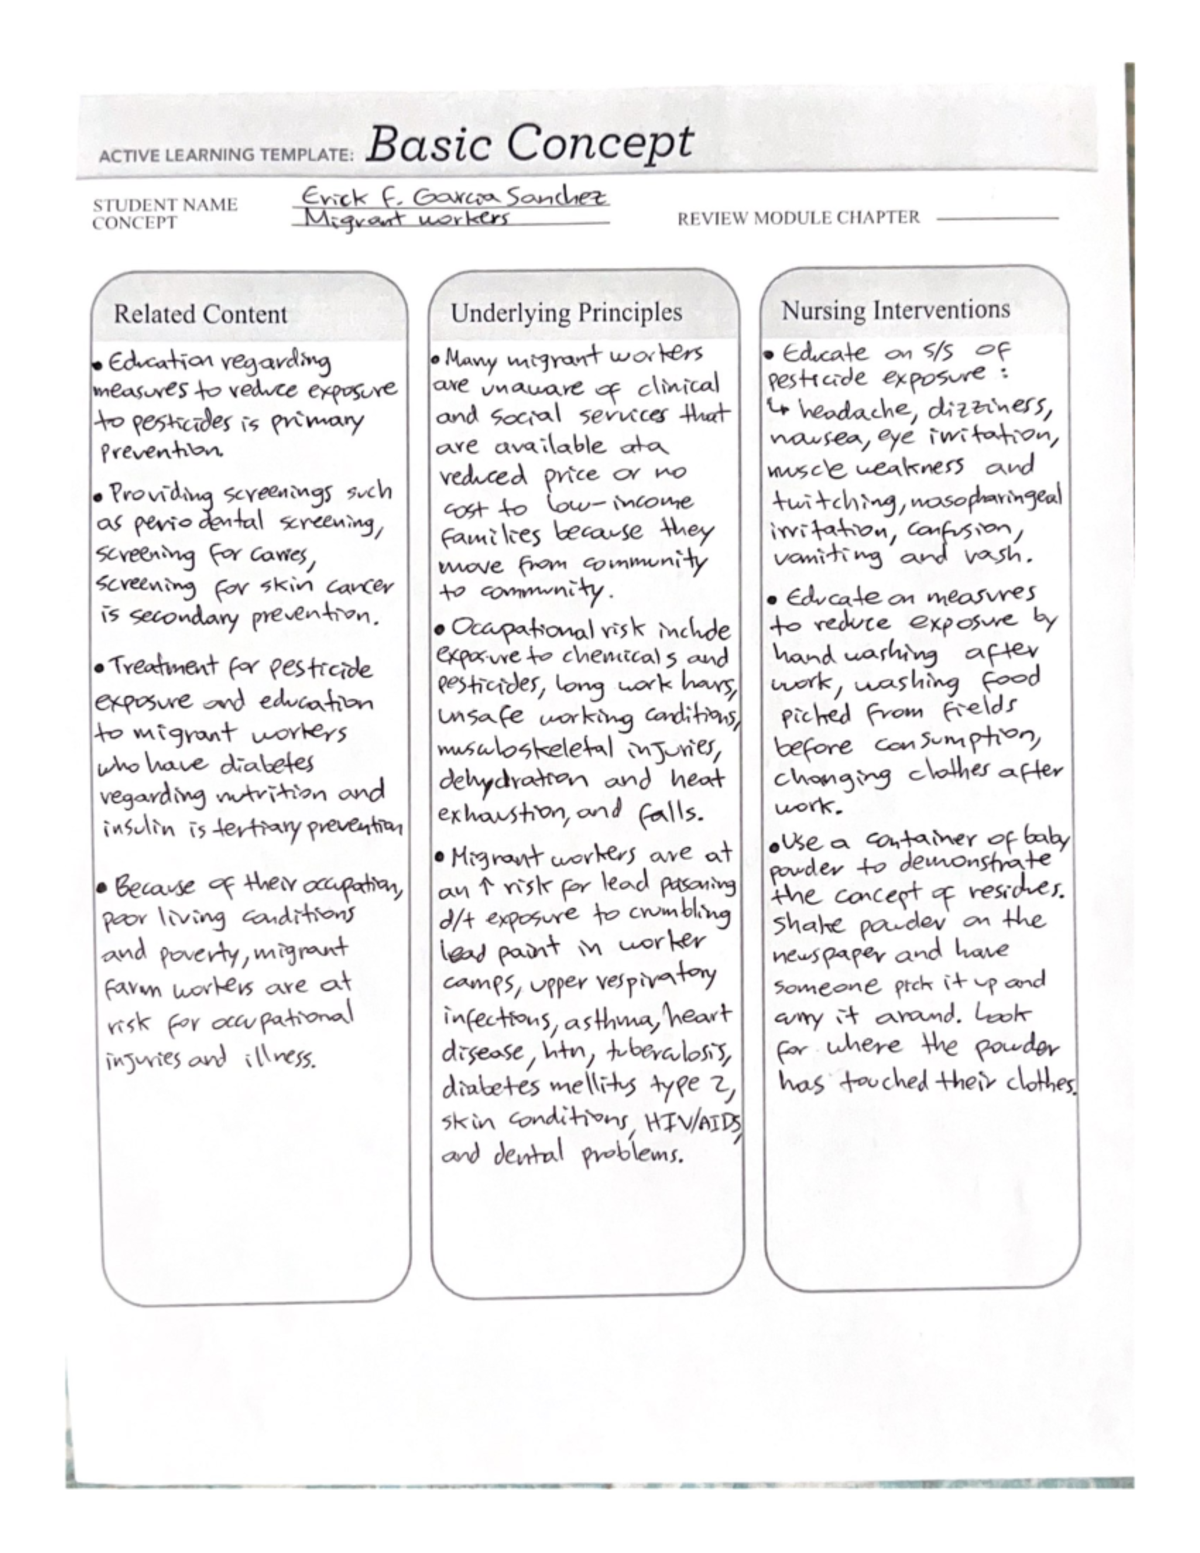 ACTIVE LEARNING TEMPLATE: Basic Concept
STUDENT NAME Erick F. Garcia Sanchez
CONCEPT Migrant workers
REVIEW MODULE CHAPTER
Related Content
• Education regarding
measures to reduce exposure
to pesticides is primary
prevention.
• Providing screenings such
as perio dental screening,
screening for caries,
screening for skin cancer
is secondary prevention.
• Treatment for pesticide
exposure and education
to migrant workers
who have diabetes
regarding nutrition and
insulin is tertiary prevention
• Because of their occupation,
poor living conditions
and poverty, migrant
farm workers are at
risk for occupational
injuries and illness.
Underlying Principles
• Many migrant workers
are unaware of clinical
and social services that
are available at a
reduced price or no
cost to low-income
families because they
move from community
to community.
• Occupational risk include
exposure to chemicals and
pesticides, long work hours,
unsafe working conditions,
musculoskeletal injuries,
dehydration and heat
exhaustion, and falls.
• Migrant workers are at
an ↑ risk for lead poisoning
d/t exposure to crumbling
lead paint in worker
camps, upper respiratory
infections, asthma, heart
disease, htn, tuberculosis,
diabetes mellitus type 2,
skin conditions, HIV/AIDS,
and dental problems.
Nursing Interventions
• Educate on s/s of
pesticide exposure :
↳ headache, dizziness,
nausea, eye irritation,
muscle weakness and
twitching, nasopharingeal
irritation, confusion,
vomiting and rash.
• Educate on measures
to reduce exposure by
hand washing after
work, washing food
picked from fields
before consumption,
changing clothes after
work.
• Use a container of baby
powder to demonstrate
the concept of residues.
Shake powder on the
newspaper and have
someone pick it up and
carry it around. Look
for where the powder
has touched their clothes.